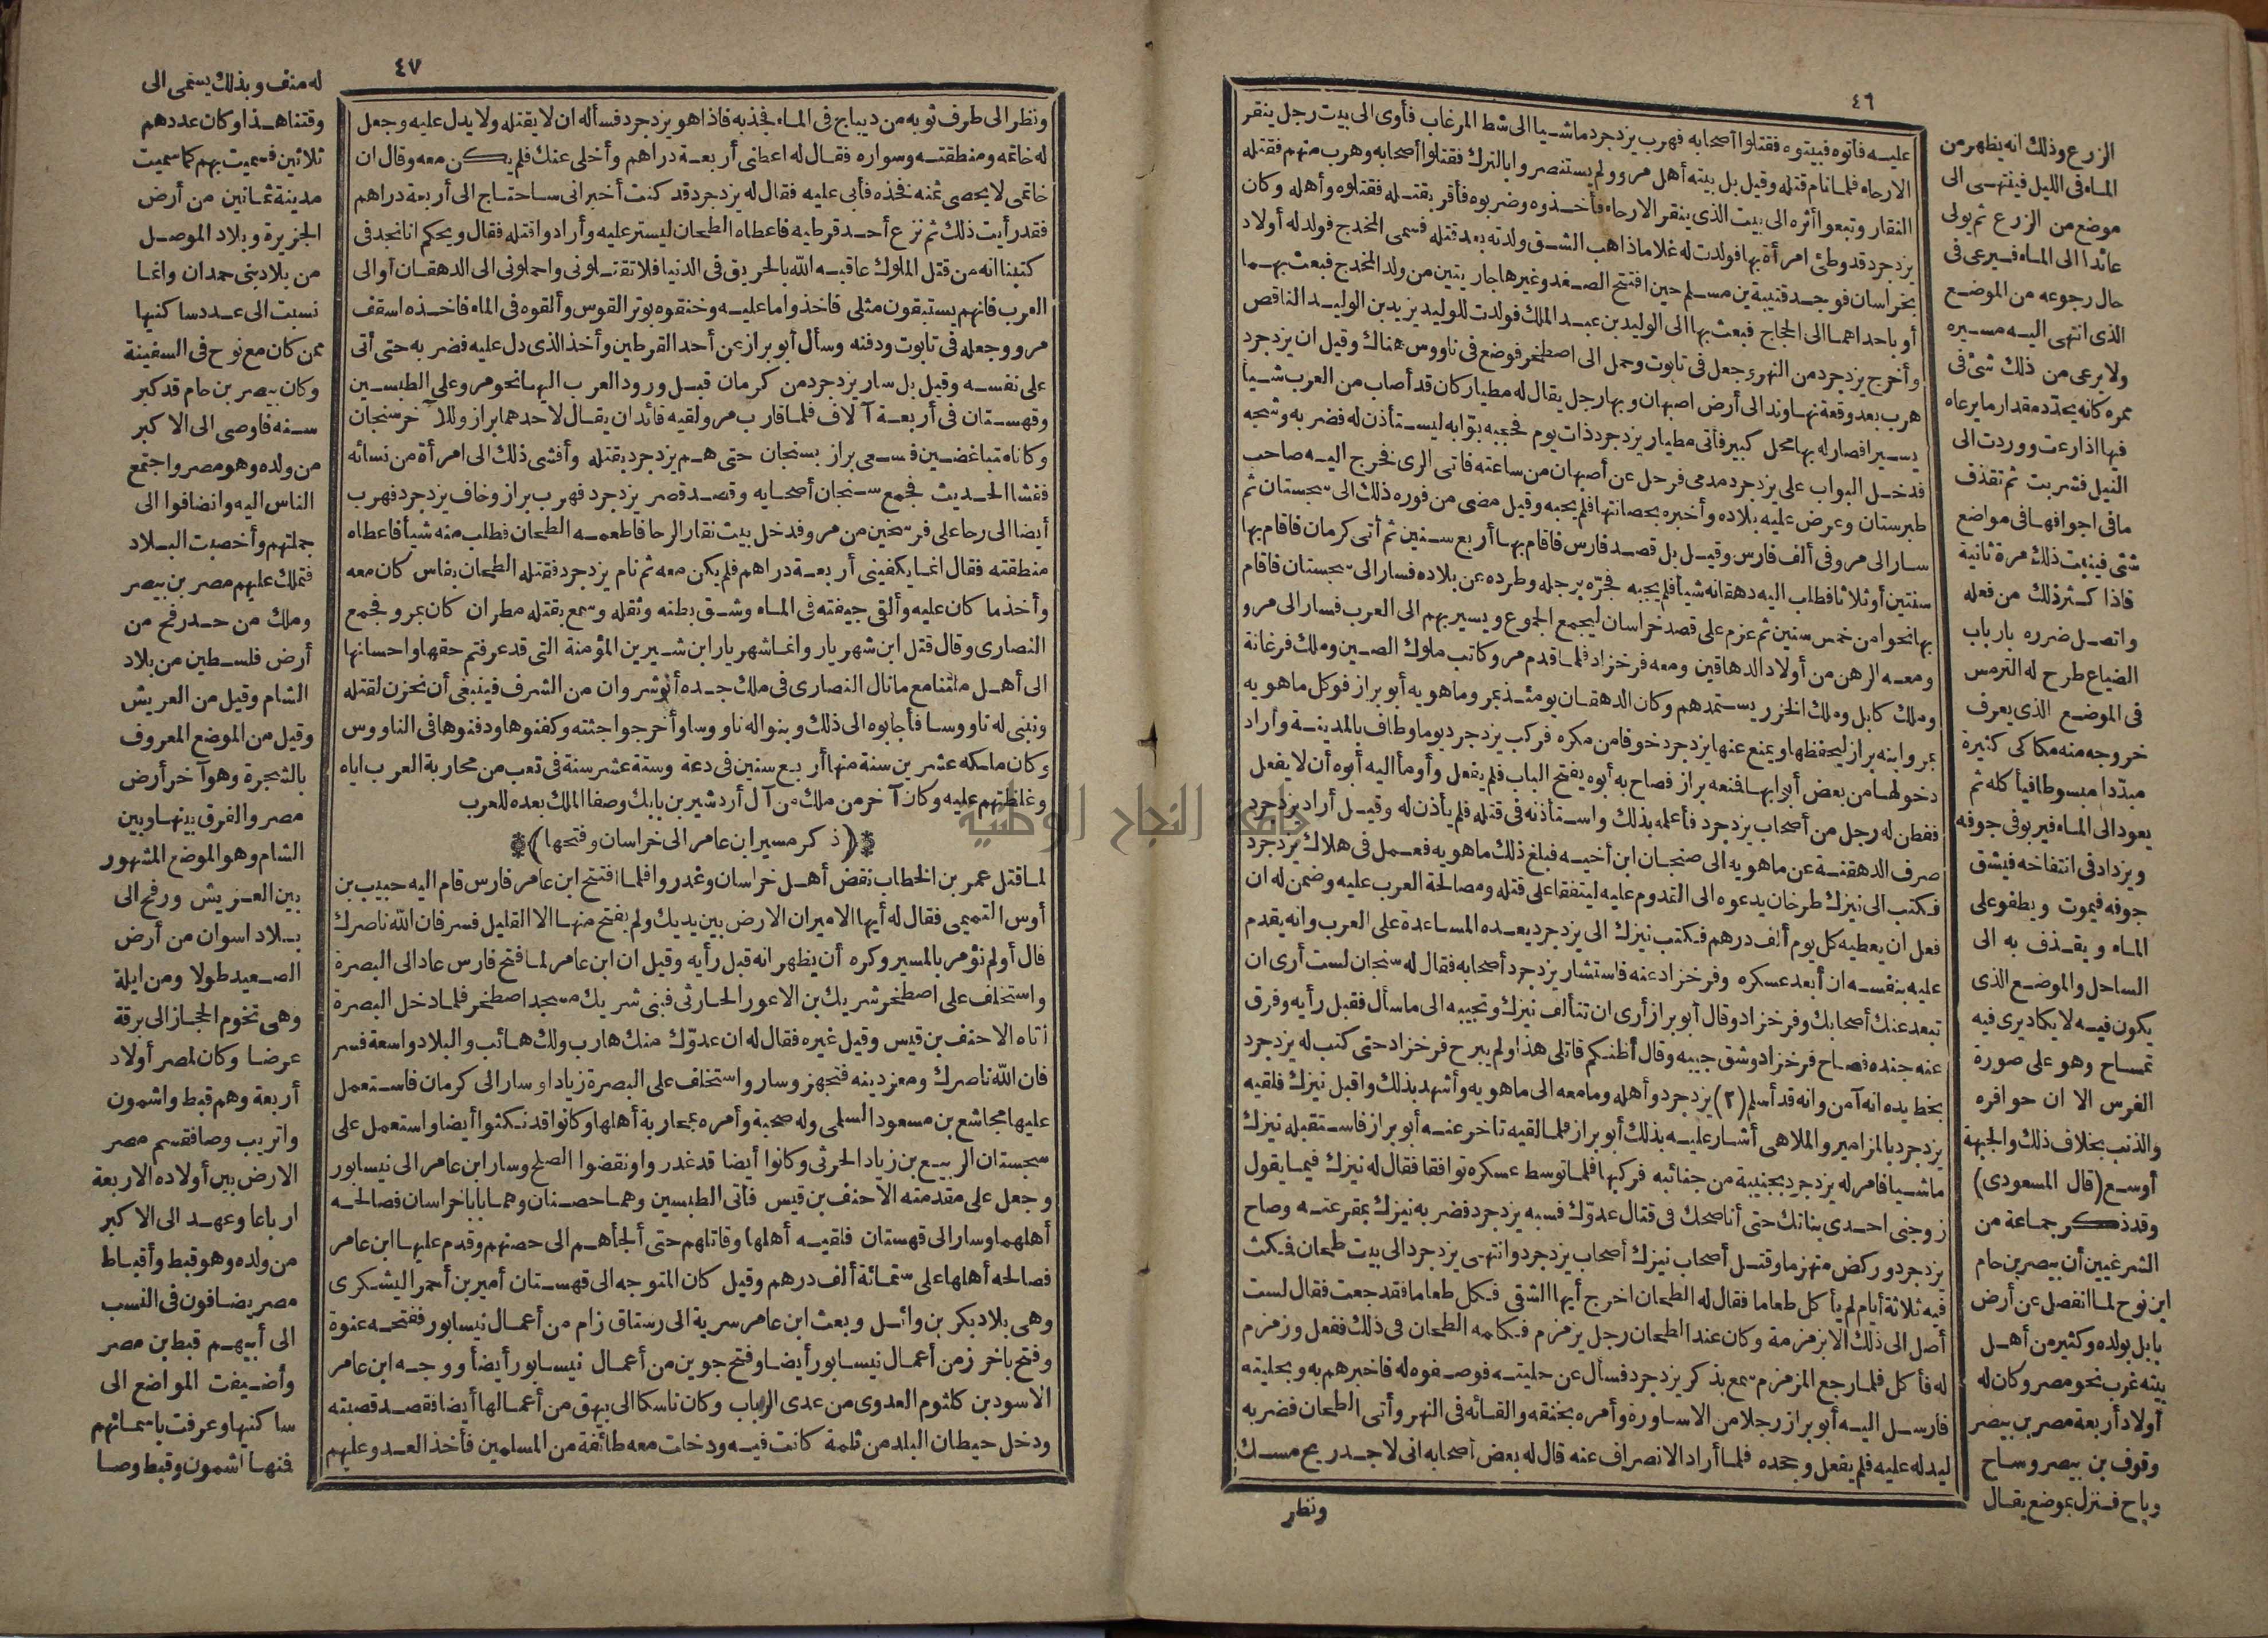 ٤٦
عليه فأتوه فبيتوه فقتلوا أصحابه فهرب يزدجرد ماشيا الى شط المرغاب فأوى الى بيت رجل ينقر
الارحاء فلما نام قتله وقيل بل بيته أهل مرو ولم يستنصر وا بالترك فقتلوا أصحابه وهرب منهم فقتله
النقار وتبعوا أثره الى بيت الذى ينقر الارحاء فأخذوه وضربوه فأقر بقتله فقتلوه وأهله وكان
يزدجرد قد وطئ امرأة بها فولدت له غلاما ذاهب الشق ولدته بعد قتله فسمى المخدج فولد له أولاد
بخراسان فوجد قتيبة بن مسلم حين افتتح الصغد وغيرها جاريتين من ولد المخدج فبعث بهما
أو باحداهما الى الحجاج فبعث بها الى الوليد بن عبد الملك فولدت للوليد يزيد بن الوليد الناقص
وأخرج يزدجرد من النهر وجعل فى تابوت وحمل الى اصطخر فوضع فى ناووس هناك وقيل ان يزدجرد
هرب بعد وقعة نهاوند الى أرض اصبهان وبها رجل يقال له مطيار كان قد أصاب من العرب شيأ
يسيرا فصار له بها محل كبير فأتى مطيار يزدجرد ذات يوم فحجبه بوّابه ليستأذن له فضربه وشجه
فدخل البواب على يزدجرد مدمى فرحل عن أصبهان من ساعته فاتى الرى فخرج اليه صاحب
طبرستان وعرض عليه بلاده وأخبره بحصانتها فلم يجبه وقيل مضى من فوره ذلك الى سجستان ثم
سار الى مرو فى ألف فارس وقيل بل قصد فارس فاقام بها أربع سنين ثم أتى كرمان فاقام بها
سنتين أو ثلاثا فطلب اليه دهقانه شيأ فلم يجبه فجره برجله وطرده عن بلاده فسار الى سجستان فاقام
بها نحوا من خمس سنين ثم عزم على قصد خراسان ليجمع الجموع ويسير بهم الى العرب فسار الى مرو
ومعه الرهن من أولاد الدهاقين ومعه فرخزاد فلما قدم مرو كاتب ملوك الصين وملك فرغانة
وملك كابل وملك الخزر يستمدهم وكان الدهقان يومئذ بمرو ماهويه أبو براز فوكل ماهويه
بمرو ابنه براز ليحفظها ويمنع عنها يزدجرد خوفا من مكره فركب يزدجرد يوما وطاف بالمدينة وأراد
دخولها من بعض أبوابها فمنعه براز فصاح به أبوه يفتح الباب فلم يفعل وأومأ اليه أبوه أن لا يفعل
ففطن له رجل من أصحاب يزدجرد فأعلمه بذلك واستأذنه فى قتله فلم يأذن له وقيل أراد يزدجرد
صرف الدهقنة عن ماهويه الى صنجان ابن أخيه فبلغ ذلك ماهويه فعمل فى هلاك يزدجرد
فكتب الى نيزك طرخان يدعوه الى القدوم عليه ليتفقا على قتله ومصالحة العرب عليه وضمن له ان
فعل ان يعطيه كل يوم ألف درهم فكتب نيزك الى يزدجرد يعده المساعدة على العرب وانه يقدم
عليه بنفسه ان أبعد عسكره وفرخزاد عنه فاستشار يزدجرد أصحابه فقال له سنجان لست أرى ان
تبعد عنك أصحابك وفرخزاد وقال أبو براز أرى ان تتألف نيزك وتجيبه الى ما سأل فقبل رأيه وفرق
عنه جنده فصاح فرخزاد وشق جيبه وقال أظنكم قاتلى هذا ولم يبرح فرخزاد حتى كتب له يزدجرد
بخط يده انه آمن وانه قد أسلم (٢) يزدجرد وأهله وما معه الى ماهويه وأشهد بذلك واقبل نيزك فلقيه
يزدجرد بالمزامير والملاهى أشار عليه بذلك أبو براز فلما لقيه تأخر عنه أبو براز فاستقبله نيزك
ماشيا فامر له يزدجرد بجنيبة من جنائبه فركبها فلما توسط عسكره تواقفا فقال له نيزك فيما يقول
زوجنى احدى بناتك حتى أناصحك فى قتال عدوّك فسبه يزدجرد فضربه نيزك بمقرعته وصاح
يزدجرد وركض منهزما وقتل أصحاب نيزك أصحاب يزدجرد وانتهى يزدجرد الى بيت طحان فمكث
فيه ثلاثة أيام لم يأكل طعاما فقال له الطحان اخرج أيها الشقى فكل طعاما فقد جعت فقال لست
أصل الى ذلك الا بزمزمة وكان عند الطحان رجل يزمزم فكلمه الطحان فى ذلك ففعل وزمزم
له فأكل فلما رجع المزمزم سمع بذكر يزدجرد فسأل عن حليته فوصفوه له فاخبرهم به وبحليته
فارسل اليه أبو براز رجلا من الاساورة وأمره بخنقه والقائه فى النهر وأتى الطحان فضربه
ليدله عليه فلم يفعل وجحده فلما أراد الانصراف عنه قال له بعض أصحابه انى لاجد ريح مسك
ونظر
الزرع وذلك انه يظهر من
الماء فى الليل فينتهى الى
موضع من الزرع ثم يولى
عائدا الى الماء فيرعى فى
حال رجوعه من الموضع
الذى انتهى اليه مسيره
ولا يرعى من ذلك شئ فى
ممره كانه يحدد مقدار ما يرعاه
فيها اذا رعت ووردت الى
النيل فشربت ثم تقذف
ما فى اجوافها فى مواضع
شتى فينبت ذلك مرة ثانية
فاذا كثر ذلك من فعله
واتصل ضرره بارباب
الضياع طرح له الترمس
فى الموضع الذى يعرف
خروجه منه مكاكى كثيرة
مبدّدا مبسوطا فيأكله ثم
يعود الى الماء فيربو فى جوفه
ويزداد فى انتفاخه فيشق
جوفه فيموت ويطفو على
الماء ويقذف به الى
الساحل والموضع الذى
يكون فيه لا يكاد يرى فيه
تمساح وهو على صورة
الفرس الا ان حوافره
والذنب بخلاف ذلك والجبهة
أوسع (قال المسعودى)
وقد ذكر جماعة من
الشرعيين أن بيصر بن حام
ابن نوح لما انفصل عن أرض
بابل بولده وكثير من أهل
بيته غرب نحو مصر وكان له
أولاد أربعة مصر بن بيصر
وقوف بن بيصر وساح
وياح فنزل بموضع يقال
٤٧
ونظر الى طرف ثوبه من ديباج فى الماء فجذبه فاذا هو يزدجرد فسأله ان لا يقتله ولا يدل عليه وجعل
له خاتمه ومنطقته وسواره فقال له اعطنى أربعة دراهم وأخلى عنك فلم يكن معه وقال ان
خاتمى لا يحصى ثمنه فخذه فأبى عليه فقال له يزدجرد قد كنت أخبر انى سأحتاج الى أربعة دراهم
فقد رأيت ذلك ثم نزع أحد قرطيه فاعطاه الطحان ليستر عليه وأرادوا قتله فقال ويحكم انا نجد فى
كتبنا انه من قتل الملوك عاقبه الله بالحريق فى الدنيا فلا تقتلونى واحملونى الى الدهقان أو الى
العرب فانهم يستبقون مثلى فاخذوا ما عليه وخنقوه بوتر القوس وألقوه فى الماء فاخذه اسقف
مرو وجعله فى تابوت ودفنه وسأل أبو براز عن أحد القرطين وأخذ الذى دل عليه فضربه حتى أتى
على نفسه وقيل بل سار يزدجرد من كرمان قبل ورود العرب اليها نحو مرو على الطبسين
وقهستان فى أربعة آلاف فلما قارب مرو لقيه قائدان يقال لاحدهما براز وللآخر سنجان
وكانا متباغضين فسعى براز بسنجان حتى هم يزدجرد بقتله وأفشى ذلك الى امرأة من نسائه
ففشا الحديث فجمع سنجان أصحابه وقصد قصر يزدجرد فهرب براز وخاف يزدجرد فهرب
أيضا الى رحا على فرسخين من مرو فدخل بيت نقار الرحا فاطعمه الطحان فطلب منه شيأ فاعطاه
منطقته فقال انما يكفينى أربعة دراهم فلم يكن معه ثم نام يزدجرد فقتله الطحان بفاس كان معه
وأخذ ما كان عليه وألقى جيفته فى الماء وشق بطنه وثقله وسمع بقتله مطران كان بمرو فجمع
النصارى وقال قتل ابن شهريار وانما شهريار ابن شيرين المؤمنة التى قد عرفتم حقها واحسانها
الى أهل ملتنا مع ما نال النصارى فى ملك جده أنوشروان من الشرف فينبغى أن نحزن لقتله
ونبنى له ناووسا فأجابوه الى ذلك وبنوا له ناووسا وأخرجوا جثته وكفنوها ودفنوها فى الناووس
وكان ملكه عشرين سنة منها أربع سنين فى دعة وستة عشر سنة فى تعب من محاربة العرب اياه
وغلظتهم عليه وكان آخر من ملك من آل أردشير بن بابك وصفا الملك بعده للعرب
﴿ذكر مسير ابن عامر الى خراسان وفتحها﴾
لما قتل عمر بن الخطاب نقض أهل خراسان وغدروا فلما افتتح ابن عامر فارس قام اليه حبيب بن
أوس التميمى فقال له أيها الامير ان الارض بين يديك ولم يفتح منها الا القليل فسر فان الله ناصرك
قال أولم نؤمر بالمسير وكره أن يظهر انه قبل رأيه وقيل ان ابن عامر لما فتح فارس عاد الى البصرة
واستخلف على اصطخر شريك بن الاعور الحارثى فبنى شريك مسجد اصطخر فلما دخل البصرة
أتاه الاحنف بن قيس وقيل غيره فقال له ان عدوّك منك هارب ولك هائب والبلاد واسعة فسر
فان الله ناصرك ومعز دينه فتجهز وسار واستخلف على البصرة زيادا وسار الى كرمان فاستعمل
عليها مجاشع بن مسعود السلمى وله صحبة وأمره بمحاربة أهلها وكانوا قد نكثوا أيضا واستعمل على
سجستان الربيع بن زياد الحرثى وكانوا أيضا قد غدروا ونقضوا الصلح وسار ابن عامر الى نيسابور
وجعل على مقدمته الاحنف بن قيس فاتى الطبسين وهما حصنان وهما بابا خراسان فصالحه
أهلهما وسار الى قهستان فلقيه أهلها وقاتلهم حتى ألجأهم الى حصنهم وقدم عليها ابن عامر
فصالحه أهلها على ستمائة ألف درهم وقيل كان المتوجه الى قهستان أمير بن أحمر اليشكرى
وهى بلاد بكر بن وائل وبعث ابن عامر سرية الى رستاق زام من أعمال نيسابور ففتحه عنوة
وفتح باخرز من أعمال نيسابور أيضا وفتح جوين من أعمال نيسابور أيضا ووجه ابن عامر
الاسود بن كلثوم العدوى من عدى الرباب وكان ناسكا الى بيهق من أعمالها أيضا فقصد قصبته
ودخل حيطان البلد من ثلمة كانت فيه ودخلت معه طائفة من المسلمين فأخذ العدو عليهم
له منف وبذلك يسمى الى
وقتنا هذا وكان عددهم
ثلاثين فسميت بهم كما سميت
مدينة ثمانين من أرض
الجزيرة وبلاد الموصل
من بلاد بنى حمدان وانما
نسبت الى عدد ساكنيها
ممن كان مع نوح فى السفينة
وكان بيصر بن حام قد كبر
سنه فاوصى الى الاكبر
من ولده وهو مصر واجتمع
الناس اليه وانضافوا الى
جملتهم وأخصبت البلاد
فتملك عليهم مصر بن بيصر
وملك من حد رفح من
أرض فلسطين من بلاد
الشام وقيل من العريش
وقيل من الموضع المعروف
بالشجرة وهو آخر أرض
مصر والفرق بينها وبين
الشام وهو الموضع المشهور
بين العريش ورفح الى
بلاد اسوان من أرض
الصعيد طولا ومن ايلة
وهى تخوم الحجاز الى برقة
عرضا وكان لمصر أولاد
أربعة وهم قبط واشمون
واتريب وصا فقسم مصر
الارض بين أولاده الاربعة
ارباعا وعهد الى الاكبر
من ولده وهو قبط وأقباط
مصر يضافون فى النسب
الى أبيهم قبط بن مصر
وأضيفت المواضع الى
ساكنيها وعرفت باسمائهم
فمنها اشمون وقبط وصا
جامعة النجاح الوطنية